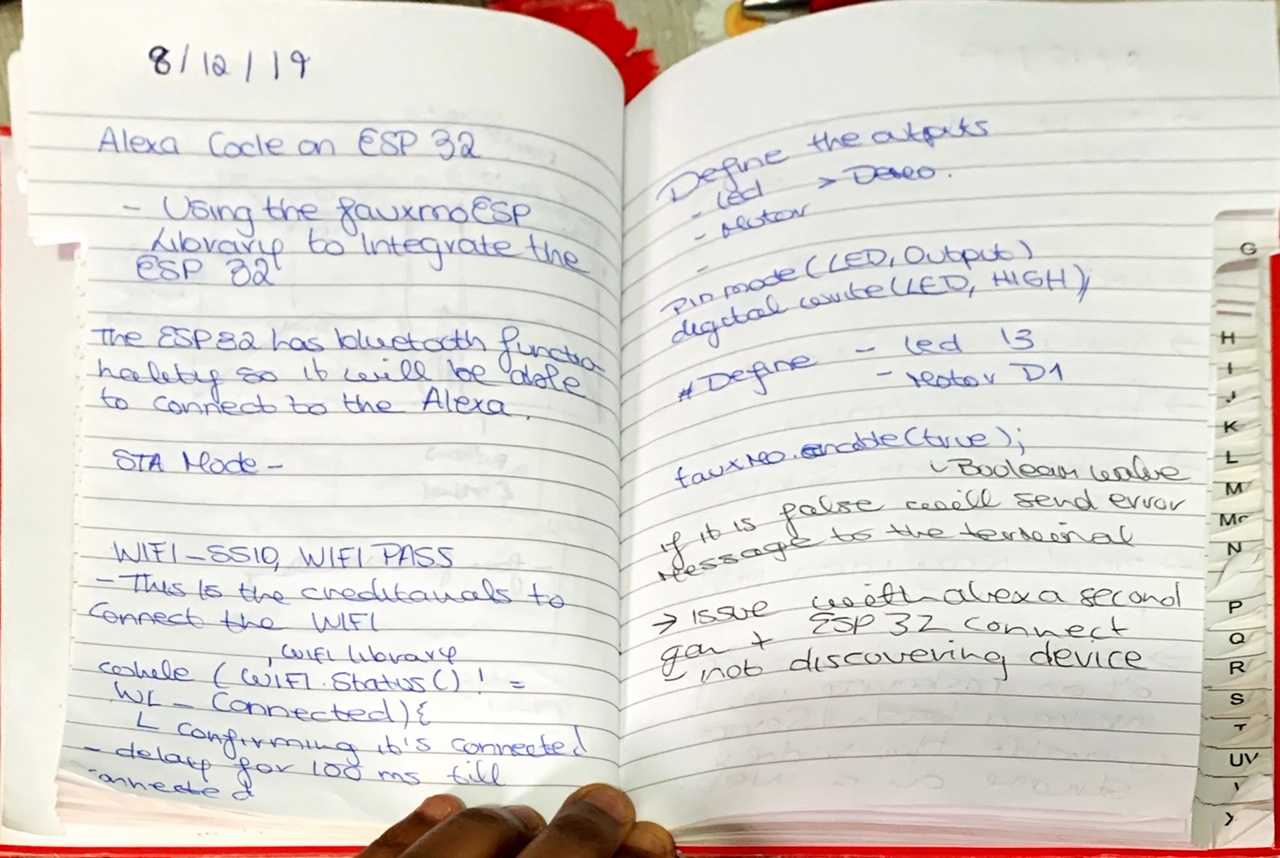 8/12/19
Alexa Code on ESP 32
- Using the fauxmoESP
Library to Integrate the
ESP 32
The ESP32 has bluetooth functio
nality so it will be able
to connect to the Alexa.
STA Mode -
WIFI_SSID, WIFI PASS
- This Is the creditanals to
connect the WIFI
WIFI library
while (WIFI.Status() ! =
WL _ Connected) {
confirming it's connected
- delay for 100 ms till
connected
Define the outputs
- Led > Demo.
- Motor
-
Pin mode (LED, Output)
digital write (LED, HIGH);
# Define - Led 13
- Motor D1
fauxmo.enable(true);
Boolean value
if it is false will send error
message to the terminal
→ issue with alexa second
gen + ESP 32 connect
- not discovering device
G
H
I
J
K
L
M
Mc
N
P
Q
R
S
T
UV
Y